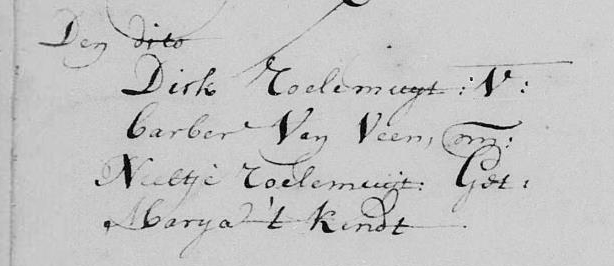 Den dito
Dirk Roelemuyt : V :
barber Van Veen, m :
Neeltje Roelemuijt : Get :
Marya 't Kindt